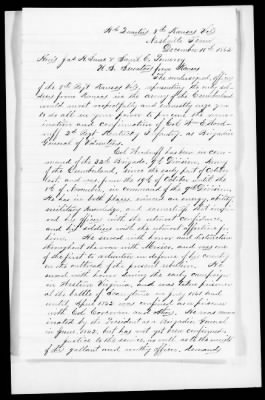 Hd Quarters 8th Kansas Vols
Nashville Tenn
December 10th 1862
Hons Jas H. Lane & Saml C. Pomeroy
U. S. Senators from Kansas
The undersigned, officers
of the 8th Regt Kansas Vols, representing the only sol-
diers from Kansas in the army of the Cumberland
would most respectfully and earnestly urge you
to do all in your power to prevent the
and confirmation of Col Wm E. Woodru-
ff 2d Regt Kentucky Infantry, as Brigadier
General of Volunteers.
Col. Woodruff has been in com-
mand of the 32d Brigade, 9th Division, Army
of the Cumberland, since the early part of October
last, and was from the of October until the
1st of November, in command of the 9th Division.
He has in both places evinced an energy, ability,
military knowledge, and
by officers with the utmost confidence,
and his soldiers with the utmost affection for
him. He served with honor and distinction
throughout the war with Mexico, and was one
of the first to volunteer in defense of his country
on the outbreak of the present rebellion. He
served with honor during the early campaign
in Western Virginia, and was taken prisoner
at the battle of in July 1861 and
until April 1862 was confined as a prisoner
with Col. Corcoran and others. He was nom-
inated by the President as a Brigadier General
in June, 1862, but has not yet been confirmed.
Justice to the service, as well as to the merits
of this gallant and worthy officer, demands